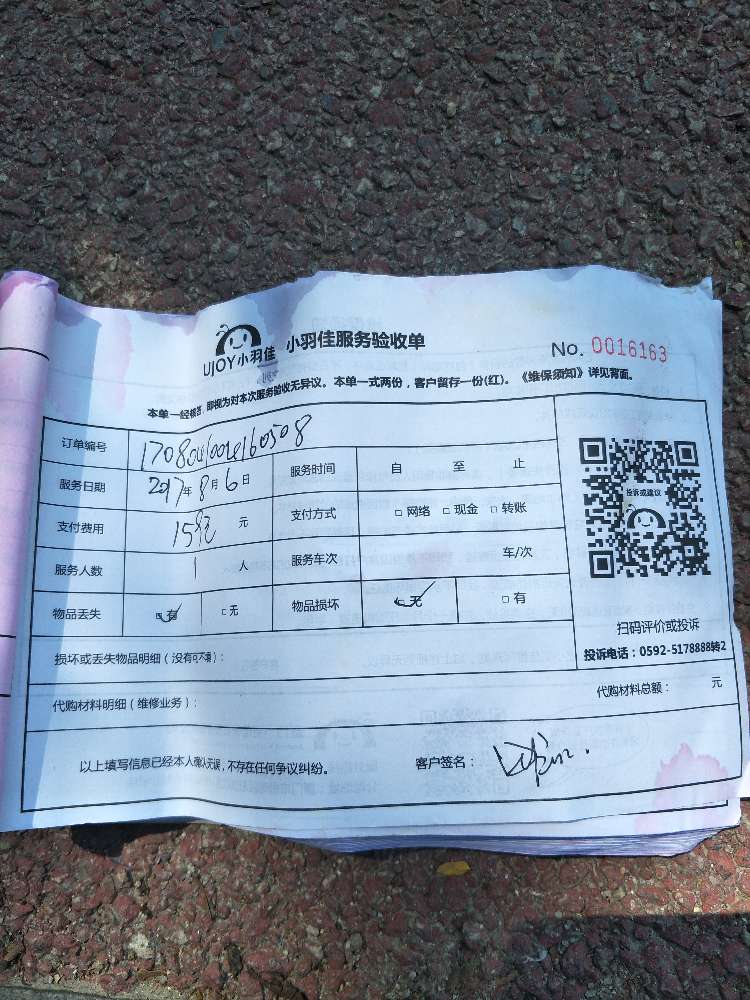 UJOY小羽佳 小羽佳服务验收单 No. 0016163
本单一经核签,即视为对本次服务验收无异议。本单一式两份,客户留存一份(红)。《维保须知》详见背面。
订单编号
服务日期 2017年8月6日 服务时间 自 至 止
支付费用 元 支付方式 □ 网络 □ 现金 □ 转账
服务人数 1 人 服务车次 车/次
物品丢失 □有 □无 物品损坏 □无 □有
投诉或建议
扫码评价或投诉
投诉电话:0592-5178888转2
损坏或丢失物品明细(没有可不填):
代购材料明细(维修业务): 代购材料总额: 元
以上填写信息已经本人确认无误,不存在任何争议纠纷。 客户签名: